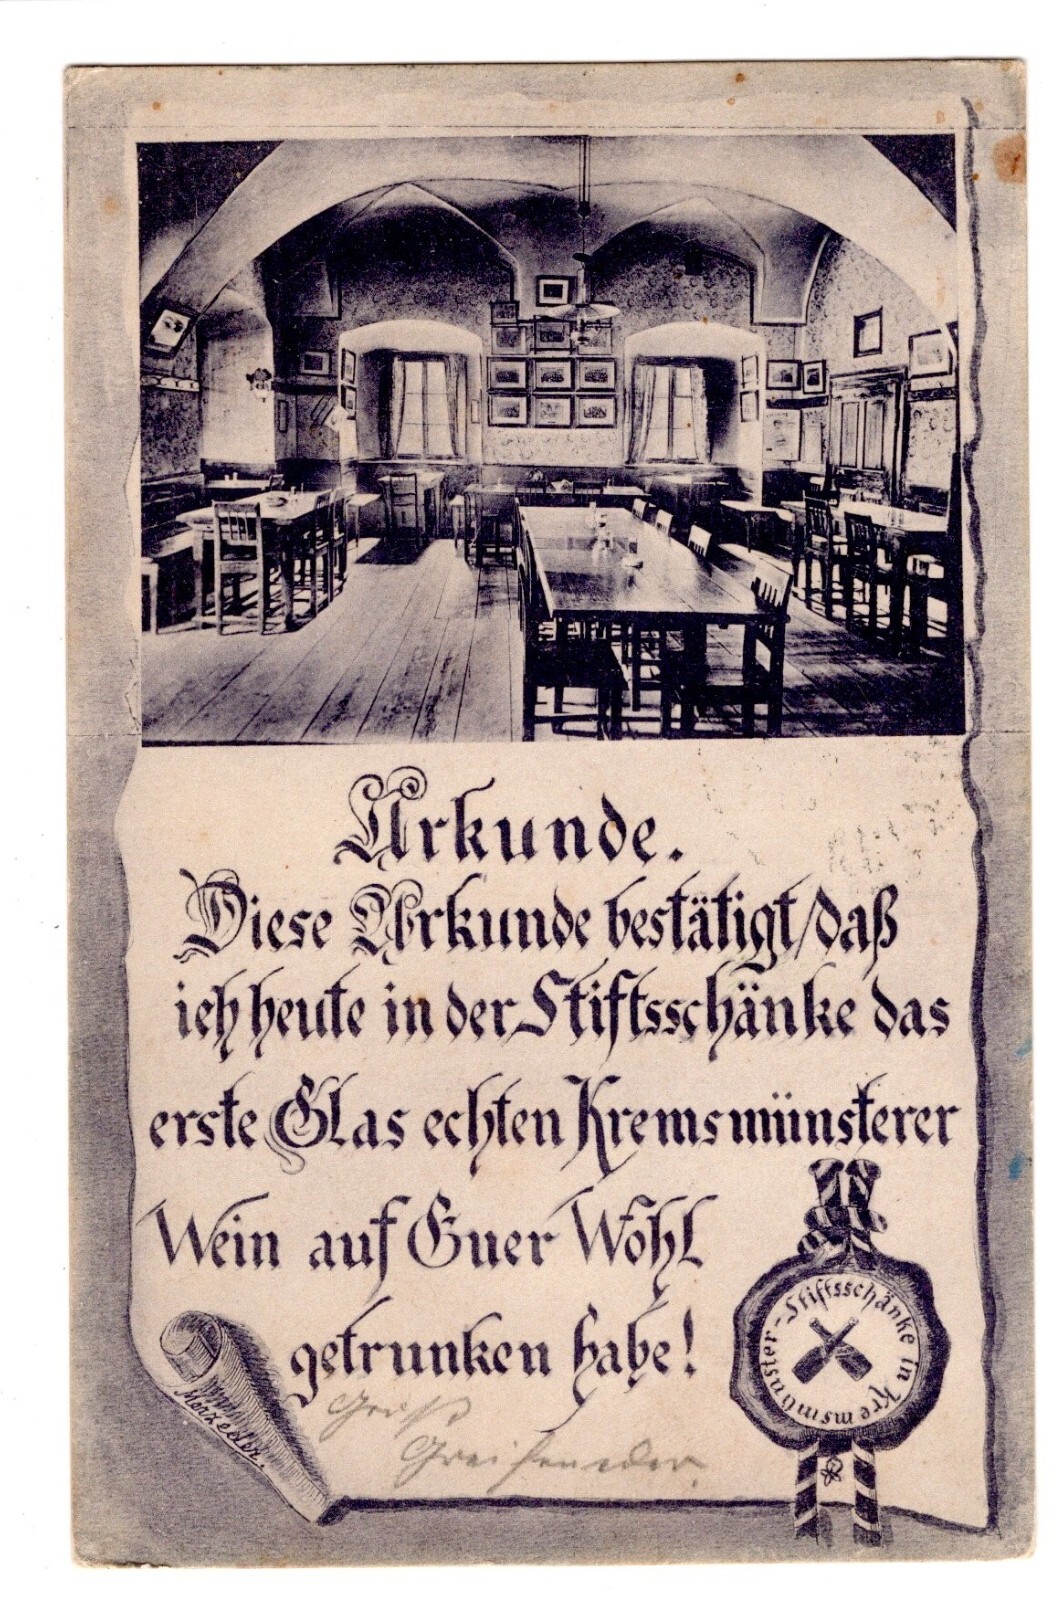 Urkunde.
Diese Urkunde bestätigt/daß
ich heute in der Stiftsschänke das
erste Glas echten Kremsmünsterer
Wein auf Euer Wohl
getrunken habe!
Gruß
Greifeneder
Morzeder.
Stiftsschänke in Kremsmünster-